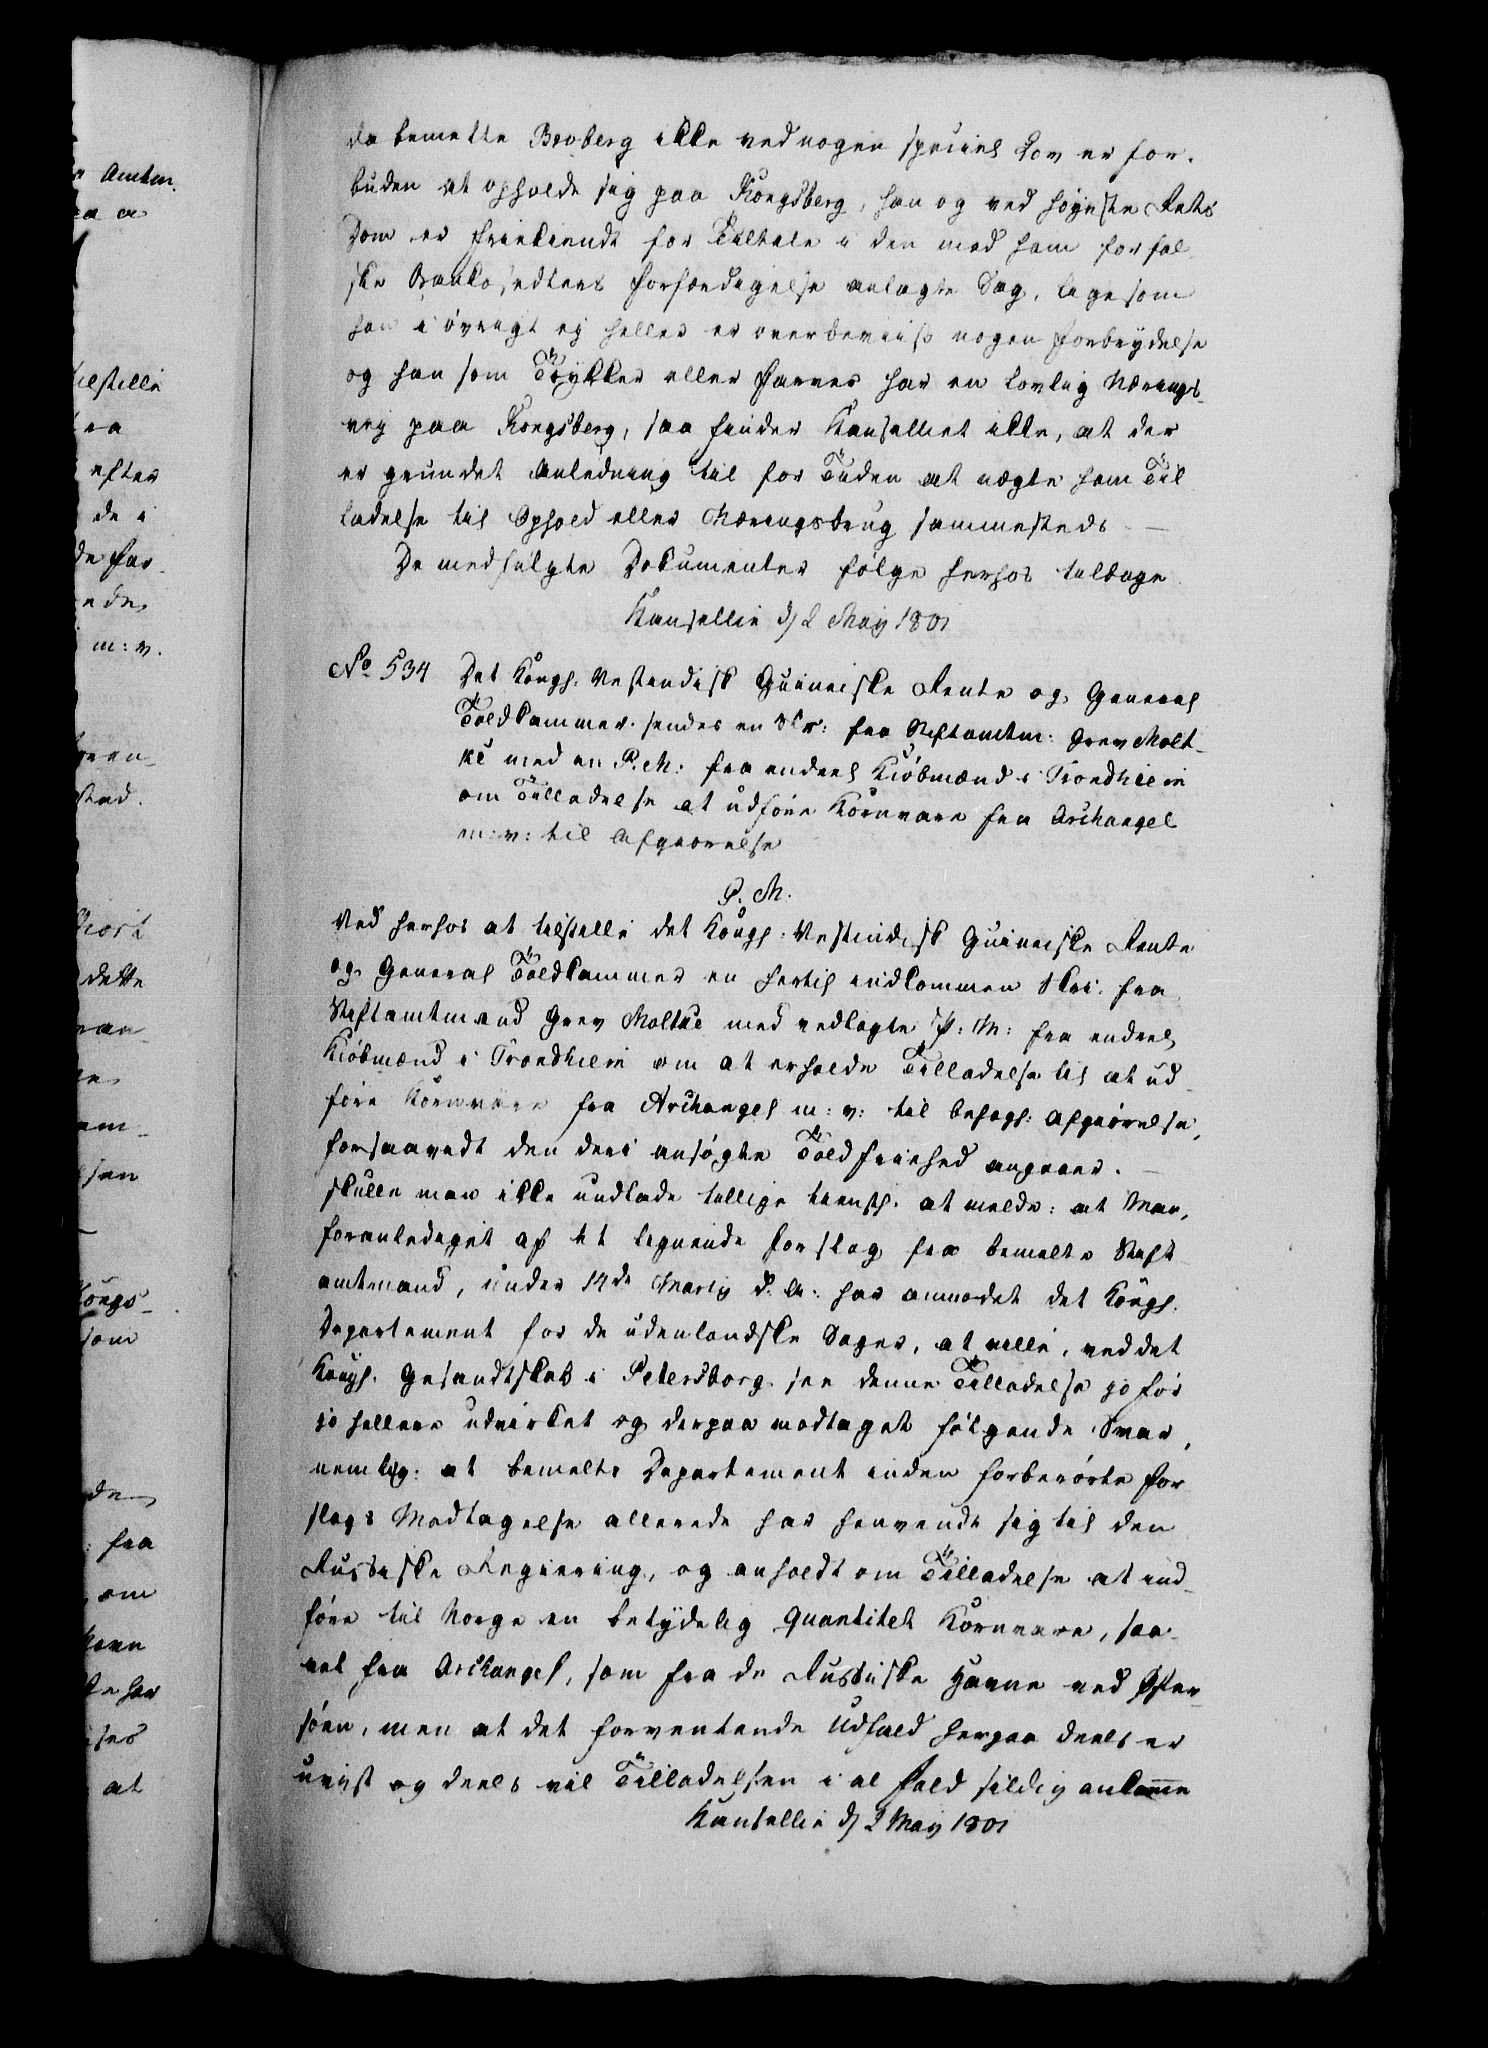 Amtm.
aa a
tilstille
fra
efter
de i
de for
ede
m: v.
sted.
hiort
dette
am-
sen
Kongs-
som
den
: fra
om
Havn
at
da bemelte Broberg ikke ved nogen speciel Lov er for-
buden at opholde sig paa Kongsberg, han og ved høyeste Rets
Dom er friekiendt for Tiltale i den mod ham for fal-
ske Bankosedlers Forfærdigelse anlagte Sag, ligesom
han i øvrigt ej heller er overbeviist nogen Forbrydelse
og han som Trykker eller Farver har en lovlig Nærings-
vej paa Kongsberg, saa finder Kanselliet ikke, at der
er grundet Anledning til for Tiden at nægte ham Til
ladelse til Ophold eller Næringsbrug sammesteds —
De medfulgte Documenter følge herhos tilbage
Kansellie d/ 2 May 1801
No 534 Det Kongl. Vestindisk Guineiske Rente og General
Toldkammer sendes en Skr: fra Stiftamtm: Grev Molt-
ke med en P.M: fra endeel Kiøbmænd i Trondhiem
om Tilladelse at udføre Kornvare fra Archangel
m: v: til Afgiørelse
P. M.
Ved herhos at tilstille det Kongl. Vestindisk Guineiske Rente
og General Toldkammer en hertil indkommen Skri. fra
Stiftamtmand Grev Moltke med vedlagte P: M: fra endeel
Kiøbmænd i Trondhiem om at erholde Tilladelse til at ud-
føre Kornvare fra Archangel m: v: til behagl: Afgiørelse,
forsaavidt den deri ansøgte Toldfriehed angaaer. —
skulle man ikke undlade tillige tienstl. at melde: at Man,
foranlediget af et lignende Forslag fra bemelte Stift-
amtmand, under 14de Martii d. A: har anmodet det Kongl.
Departement for de udenlandske Sager, at ville, ved det
Kongl. Gesandtskab i Petersborg see denne Tilladelse jo før
jo hellere udvirket og derpaa modtaget følgende Svar,
nemlig: at bemelte Departement inden forberørte For
slags Modtagelse allerede har henvendt sig til den
Russiske Regiering, og anholdt om Tilladelse at ind-
føre til Norge en betydelig Quantitet Kornvare, saa-
vel fra Archangel, som fra de Russiske Havne ved Øster
søen, men at det forventende Udfald herpaa deels er
uvist og deels vil Tilladelsen i al Fald sildig ankomme
Kansellie d/ 2 May 1801